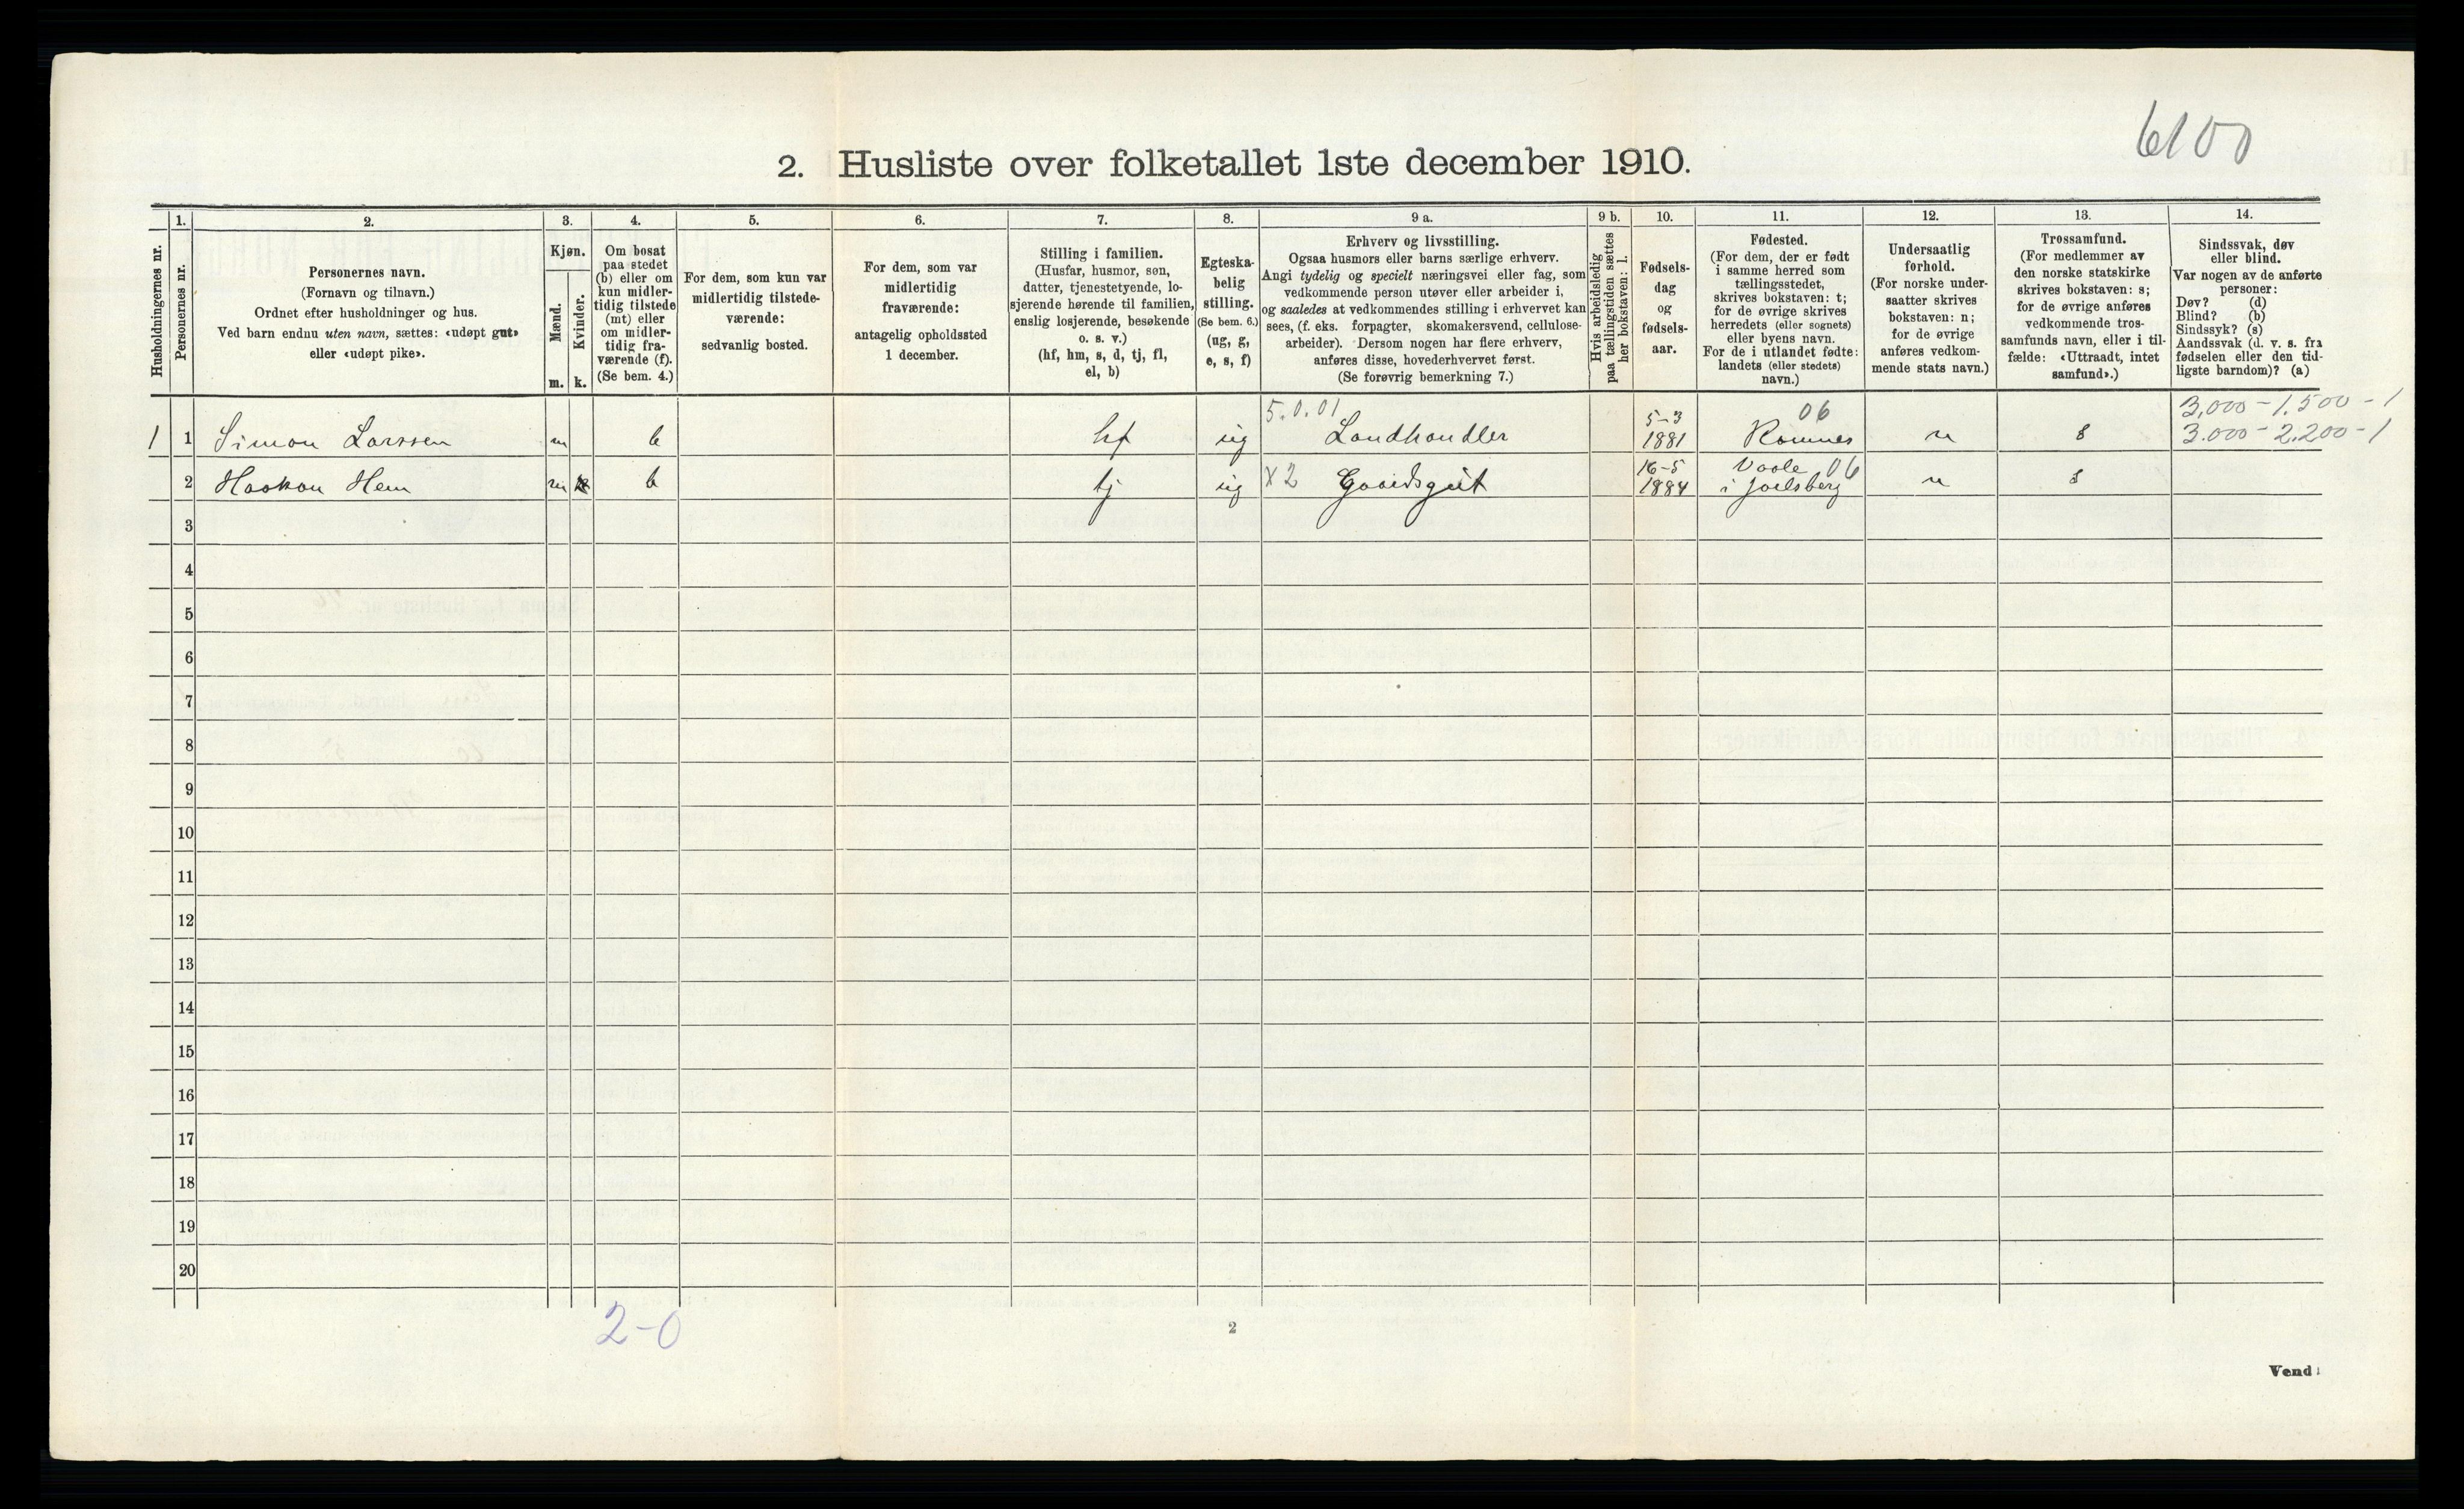 6100
2. Husliste over folketallet 1ste december 1910.
Husholdningernes nr.
1.
Personernes nr.
2.
Personernes navn.
(Fornavn og tilnavn.)
Ordnet efter husholdninger og hus.
Ved barn endnu uten navn, sættes: «udøpt gut»
eller «udøpt pike».
3.
Kjøn.
Mænd.
m.
Kvinder.
k.
4.
Om bosat
paa stedet
(b) eller om
kun midler-
tidig tilstede
(mt) eller
om midler-
tidig fra-
værende (f).
(Se bem. 4.)
5.
For dem, som kun var
midlertidig tilstede-
værende:
sedvanlig bosted.
6.
For dem, som var
midlertidig
fraværende:
antagelig opholdssted
1 december.
7.
Stilling i familien.
(Husfar, husmor, søn,
datter, tjenestetyende, lo-
sjerende hørende til familien,
enslig losjerende, besøkende
o. s. v.)
(hf, hm, s, d, tj, fl,
el, b)
8.
Egteska-
belig
stilling.
(Se bem. 6.)
(ug, g,
e, s, f)
9 a.
Erhverv og livsstilling.
Ogsaa husmors eller barns særlige erhverv.
Angi tydelig og specielt næringsvei eller fag, som
vedkommende person utøver eller arbeider i,
og saaledes at vedkommendes stilling i erhvervet kan
sees, (f. eks. forpagter, skomakersvend, cellulose-
arbeider). Dersom nogen har flere erhverv,
anføres disse, hovederhvervet først.
(Se forøvrig bemerkning 7.)
9 b.
Hvis arbeidsledig
paa tællingstiden sættes
her bokstaven: l.
10.
Fødsels-
dag
og
fødsels-
aar.
11.
Fødested.
(For dem, der er født
i samme herred som
tællingsstedet,
skrives bokstaven: t;
for de øvrige skrives
herredets (eller sognets)
eller byens navn.
For de i utlandet fødte:
landets (eller stedets)
navn.)
12.
Undersaatlig
forhold.
(For norske under-
saatter skrives
bokstaven: n;
for de øvrige
anføres vedkom-
mende stats navn.)
13.
Trossamfund.
(For medlemmer av
den norske statskirke
skrives bokstaven: s;
for de øvrige anføres
vedkommende tros-
samfunds navn, eller i til-
fælde: «Uttraadt, intet
samfund».)
14.
Sindssvak, døv
eller blind.
Var nogen av de anførte
personer:
Døv? (d)
Blind? (b)
Sindssyk? (s)
Aandssvak (d. v. s. fra
fødselen eller den tid-
ligste barndom)? (a)
5.0.01 5-3 06 3,000-1.500-1
1 1 Simon Larssen m b hf ug Landhandler 1881 Ramnes n s 3.000-2.200-1
2 Haakon Hem m b tj ug X2 Gaardsgut 16-5 1884 Vaale 06 i Jarlsberg n s
3
4
5
6
7
8
9
10
11
12
13
14
15
16
17
18
19
20
2-0
2
Vend!